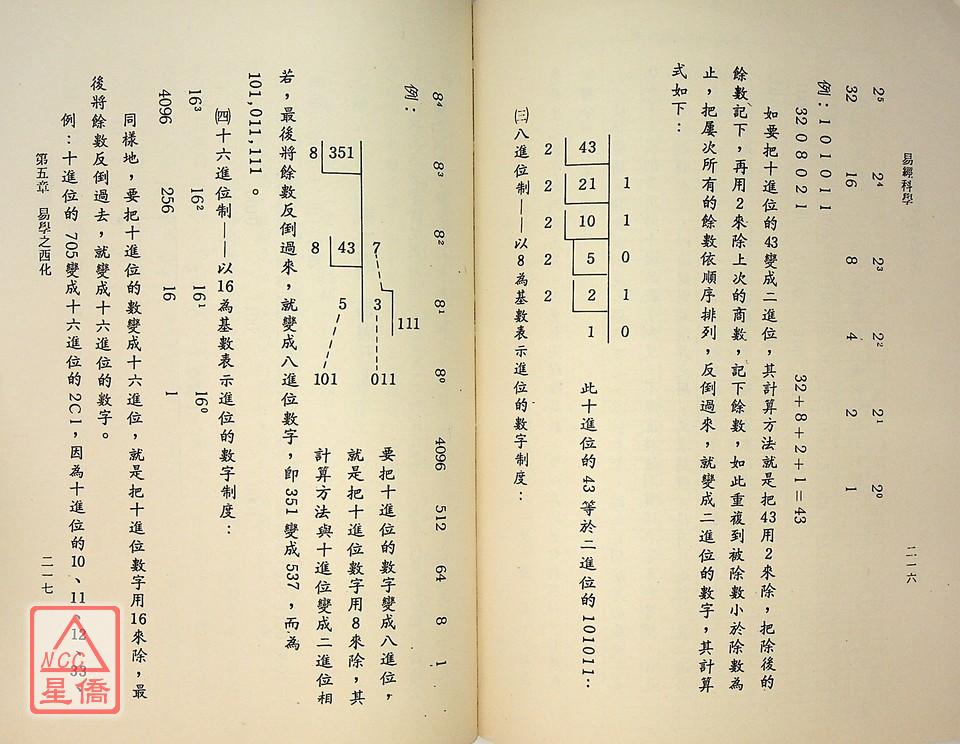 易經科學
二一六
2⁵ 2⁴ 2³ 2² 2¹ 2⁰
32 16 8 4 2 1
例：101011
32 0 8 0 2 1 32＋8＋2＋1＝43
如要把十進位的43變成二進位，其計算方法就是把43用2來除，把除後的
餘數記下，再用2來除上次的商數，記下餘數，如此重複到被除數小於除數為
止，把屢次所有的餘數依順序排列，反倒過來，就變成二進位的數字，其計算
式如下：
2 43
2 21 1
2 10 1
2 5 0
2 2 1
1 0
此十進位的43等於二進位的101011‥
㈢八進位制——以8為基數表示進位的數字制度：
8⁴ 8³ 8² 8¹ 8⁰ 4096 512 64 8 1
例：
8 351
8 43 7
5 3 111
101 011
要把十進位的數字變成八進位，
就是把十進位數字用8來除，其
計算方法與十進位變成二進位相
若，最後將餘數反倒過來，就變成八進位數字，即351變成537，而為
101,011,111。
㈣十六進位制——以16為基數表示進位的數字制度：
16³ 16² 16¹ 16⁰
4096 256 16 1
同樣地，要把十進位的數變成十六進位，就是把十進位數字用16來除，最
後將餘數反倒過去，就變成十六進位的數字。
例：十進位的705變成十六進位的2C1，因為十進位的10、11、12、33、
第五章 易學之西化
二一七
NCC
星僑